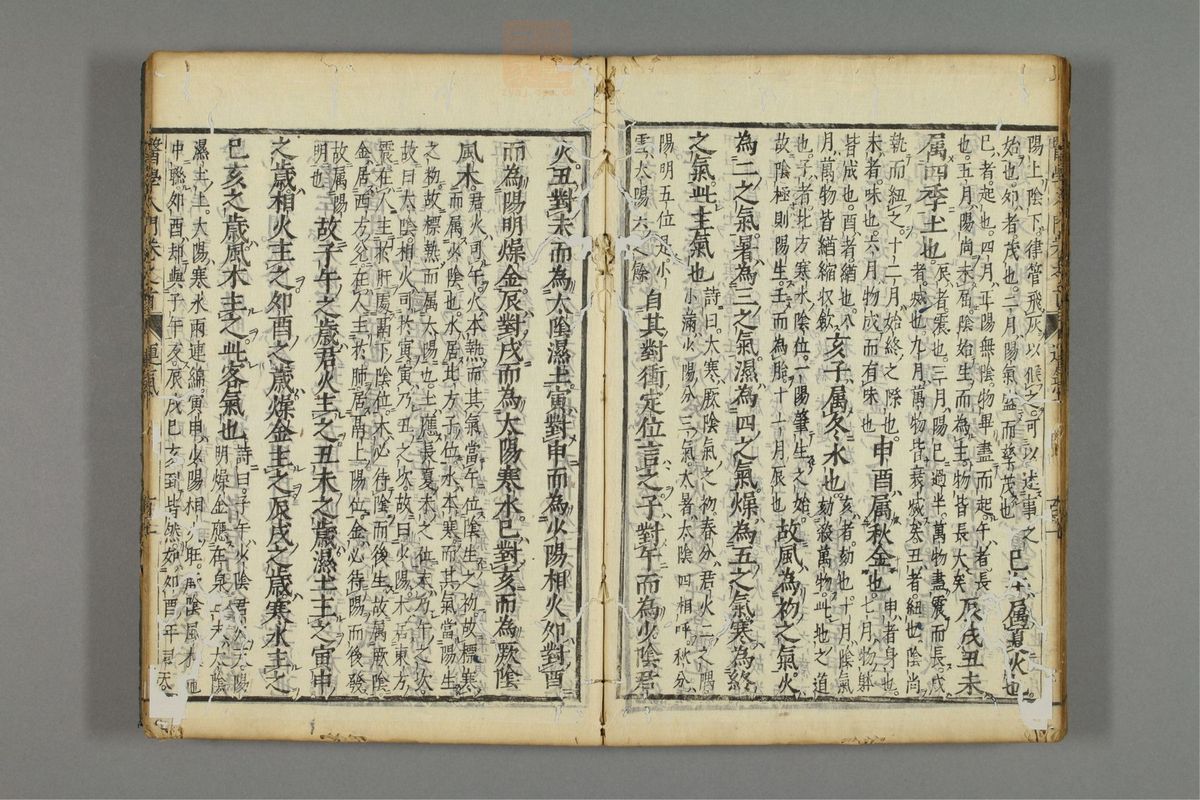 陽上陰下律管飛灰以候之可以述事之
始也卯者茂也二月陽氣盛而孳茂也
巳午属夏火也
巳者起也四月正陽無陰物畢盡而起午者長
也五月陽尚未屈陰始生而為主物皆長大矣
辰戌丑未
属四季土也
辰者震也三月陽已過半萬物盡震而長戌
者滅也九月萬物皆衰滅矣丑者紐也陰尚
執而紐之十二月始終之際也
未者味也六月物成而有味也
申酉属秋金也
申者身也七月物體
皆成也酉者緧也八
月萬物皆緧縮収斂
亥子属冬水也
亥者劾也十月陰氣
劾殺萬物此地之道
也子者北方寒水陰位一陽肇生之始
故陰極則陽生壬而為胎十一月辰也
故風為初之氣火
為二之氣暑為三之氣濕為四之氣燥為五之氣寒為終
之氣此主氣也
詩曰大寒厥陰氣之初春分君火二之隅
小滿少陽分三氣大暑太陰四相呼秋分
陽明五位是小
雪太陽六之餘
自其對衝定位言之子對午而為少陰君
火丑對未而為太陰濕土寅對申而為少陽相火卯對酉
而為陽明燥金辰對戌而為太陽寒水巳對亥而為厥陰
風木
君火司午火本熱而其氣當午位陰生之初故標寒
而属少陰也水居北方子位水本寒而其氣當陽生
之初故標熱而属太陽也土應長夏未之位未乃午之次
故曰太陰相火司於寅寅乃丑之次故曰少陽木居東方
震在人主於肝居膈下陰位木必待陰而後生故属厥陰
金居西方兌在人主於肺居膈上陽位金必待陽而後發
故属陽
明也
故子午之歲君火主之丑未之歲濕土主之寅申
之歲相火主之卯酉之歲燥金主之辰戌之歲寒水主之
巳亥之歲風木主之此客氣也
詩曰子午少陰君火太陽
明燥金應在泉丑未太陰
濕土上太陽寒水雨連綿寅申少陽相火旺厥陰風木
中聯卯酉却與子午反辰戌巳亥到皆然如卯酉年